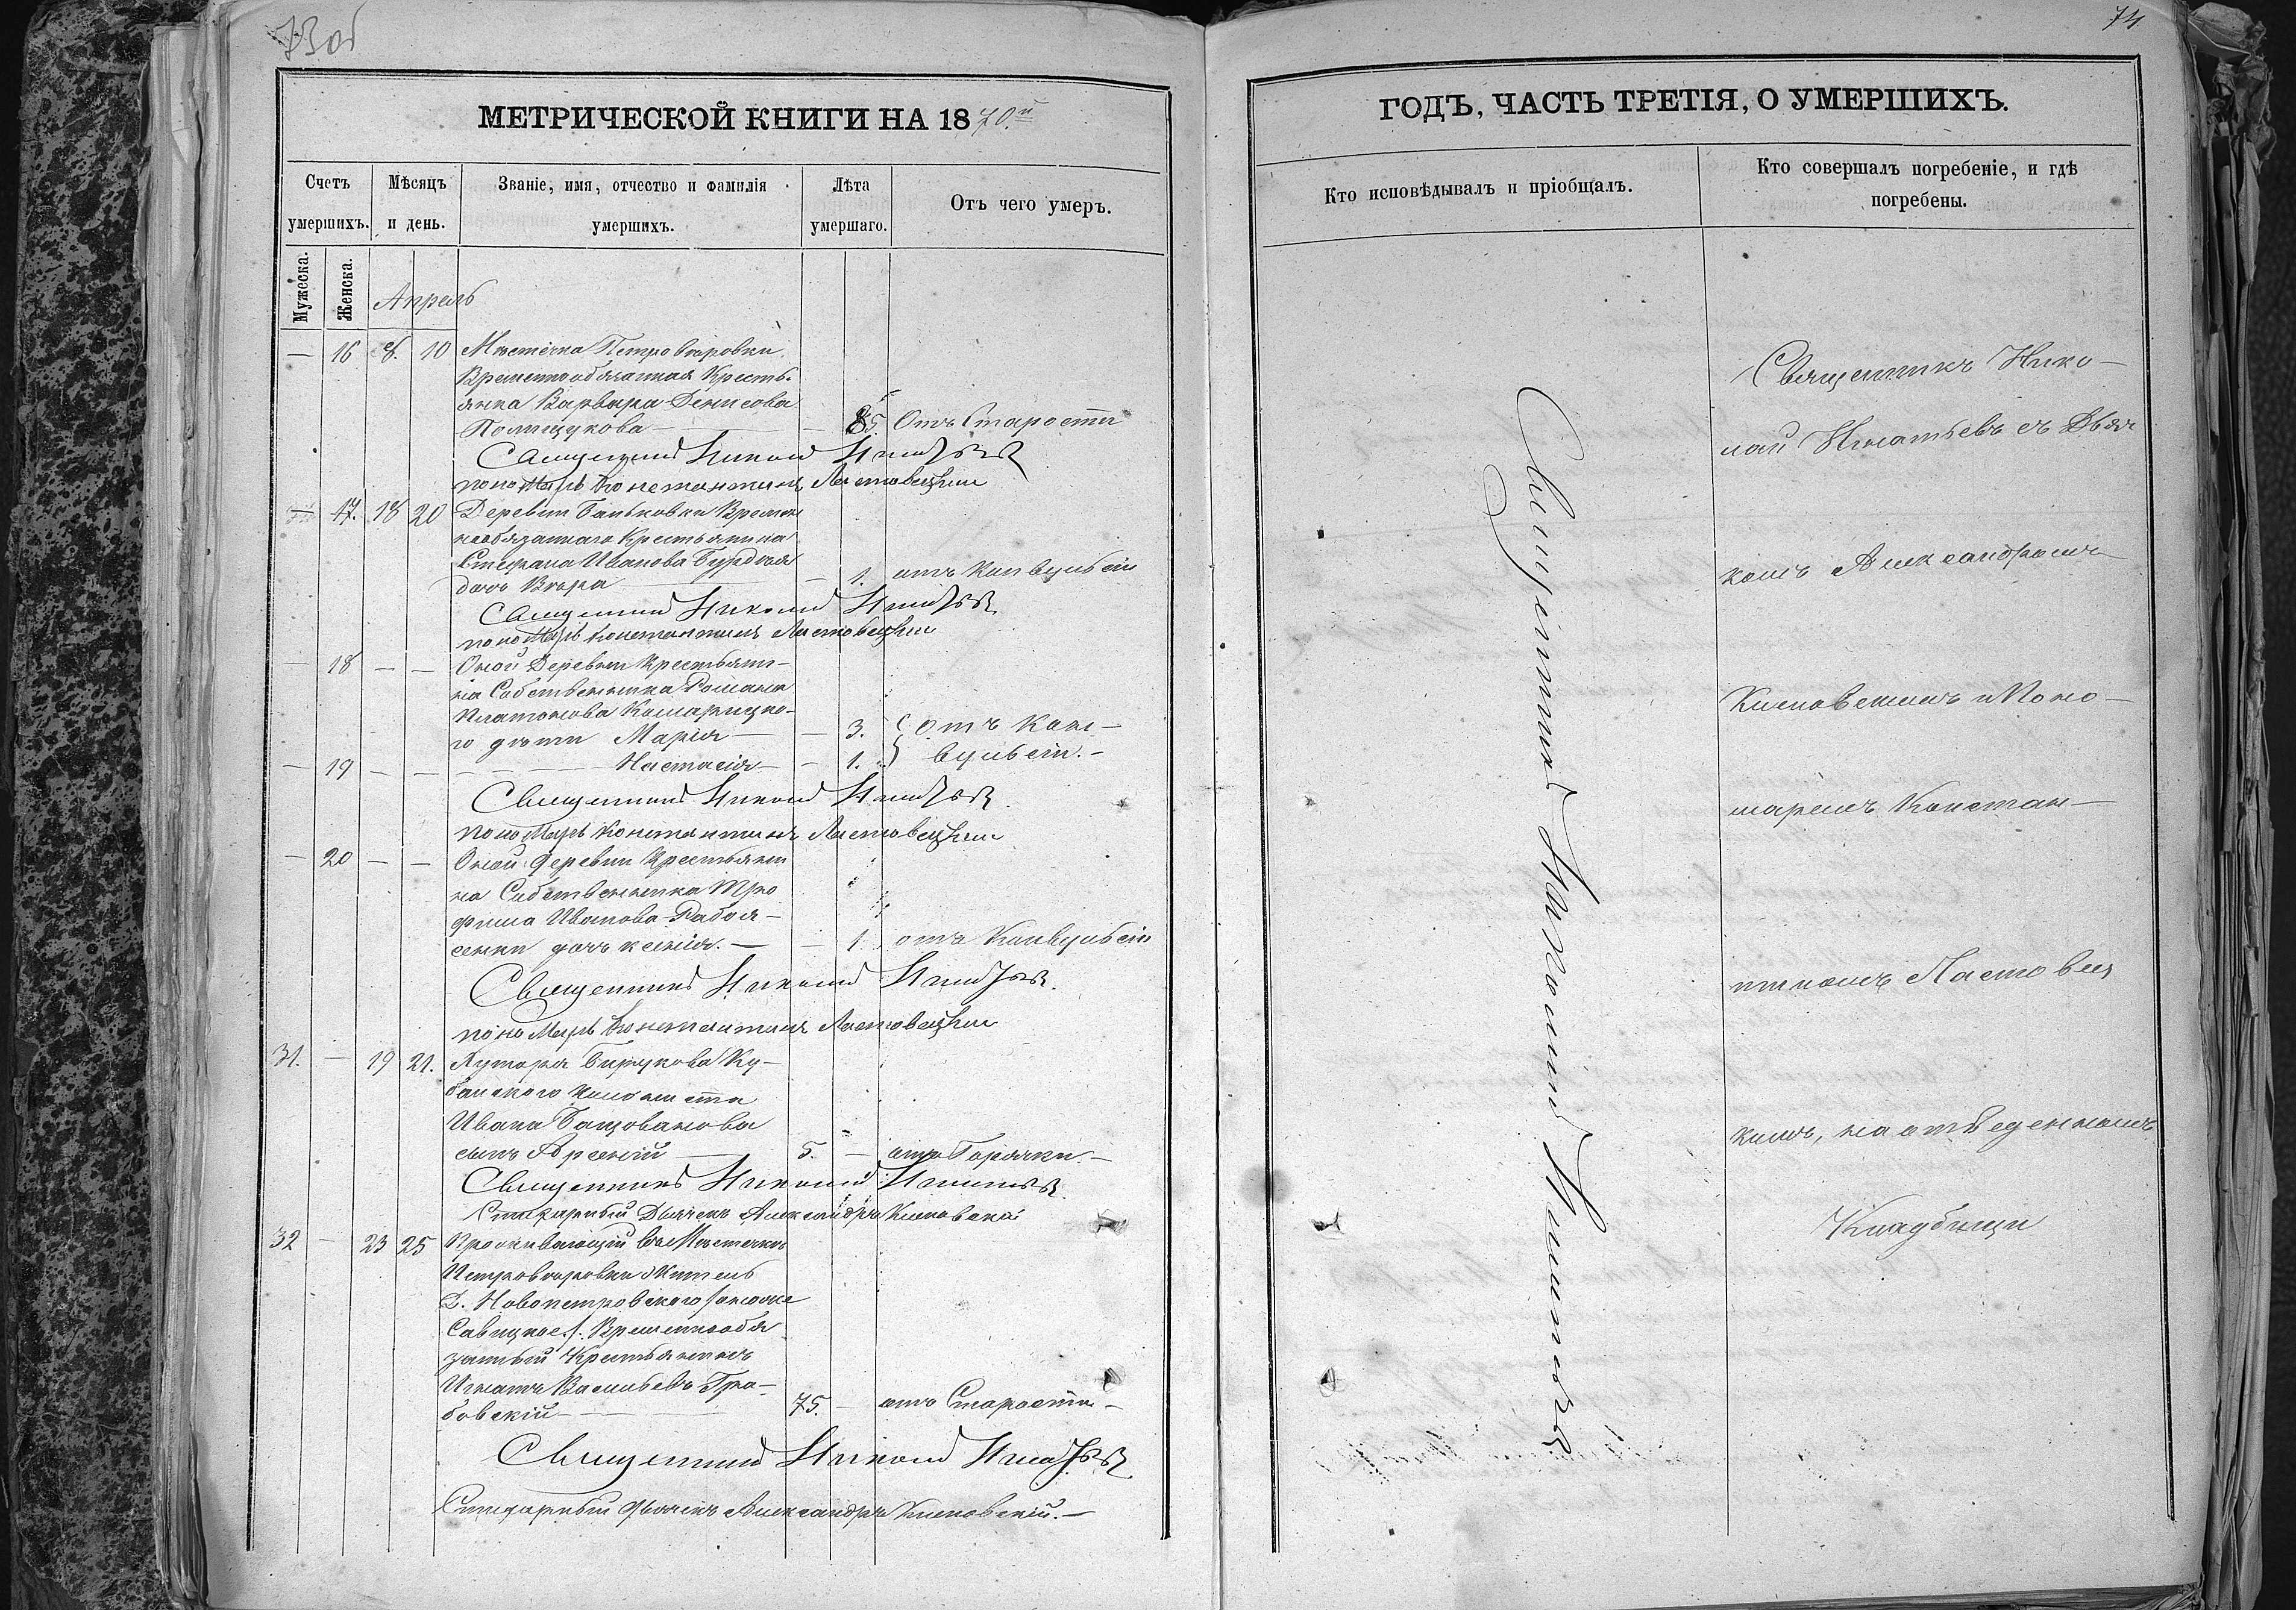 73об
МЕТРИЧЕСКОЙ КНИГИ НА 1870.й
Счетъ умершихъ.
Мѣсяцъ и день.
Званіе, имя, отчество и фамилія умершихъ.
Лѣта умершаго.
Отъ чего умеръ.
Мужеска.
Женска.
Апрель
— 16 8. 10 Мѣстечка Петровѣровки
Временнообязанная Кресть-
янка Варвара Денисова
Полищукова — — 85. Отъ Старости
Священникъ Николай Игнатьевъ
пономарь Константинъ Ластовецкій
— 17. 18 20 Деревни Баньковки Времен
нообязаннаго Крестьянина
Стефана Иванова
дочь Вѣра — — 1. отъ Конвульсіи
Священникъ Николай Игнатьевъ
пономарь Константинъ Ластовецкій
— 18 — — Оной Деревни Крестьяни-
на Собственника Романа
Платонова
го дѣти Марія — — 3. отъ Кон-
— 19 — — — Настасія — — 1. вульсіи. —
Священникъ Николай Игнатьевъ
пономарь Константинъ Ластовецкій
— 20 — — Оной Деревни Крестьяни
на Собственника Тро
фима Иванова
дочь Ксенія. — — 1. отъ Конвульсіи
Священникъ Николай Игнатьевъ.
пономарь Константинъ Ластовецкій
31. — 19 21. Хутора Бирукова Ку-
банскаго Колониста
Ивана
сынъ Арсеній — 5. — отъ Горячки. —
Священникъ Николай Игнатьевъ.
Стихарный Дьячекъ Александръ
32 — 23 25 Проживающій въ Мѣстечкѣ
Петровѣровки Житель
Д. Новопетровскаго
Савицкое
занный Крестьянинъ
Игнатъ Васильевъ Гра-
бовскій — 75. — отъ Старости —
Священникъ Николай Игнатьевъ.
Стихарный Дьячекъ Александръ
74
ГОДЪ, ЧАСТЬ ТРЕТІЯ, О УМЕРШИХЪ.
Кто исповѣдывалъ и пріобщалъ.
Кто совершалъ погребеніе, и гдѣ
погребены.
Священникъ Николай Игнатьевъ
Священникъ Нико-
лай Игнатьевъ съ Дьяч
комъ Александромъ
и Поно-
маремъ Констан-
тиномъ Ластовец
кимъ, на отведенномъ
Кладбищи